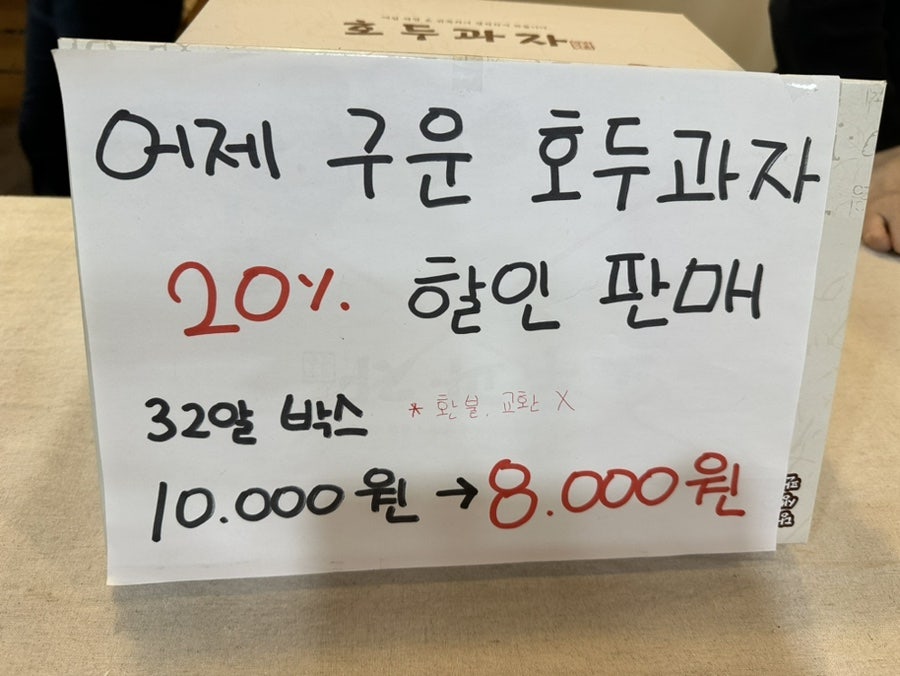 호두과자
어제 구운 호두과자
20% 할인 판매
32알 박스 * 환불. 교환 X
10.000원 → 8.000원